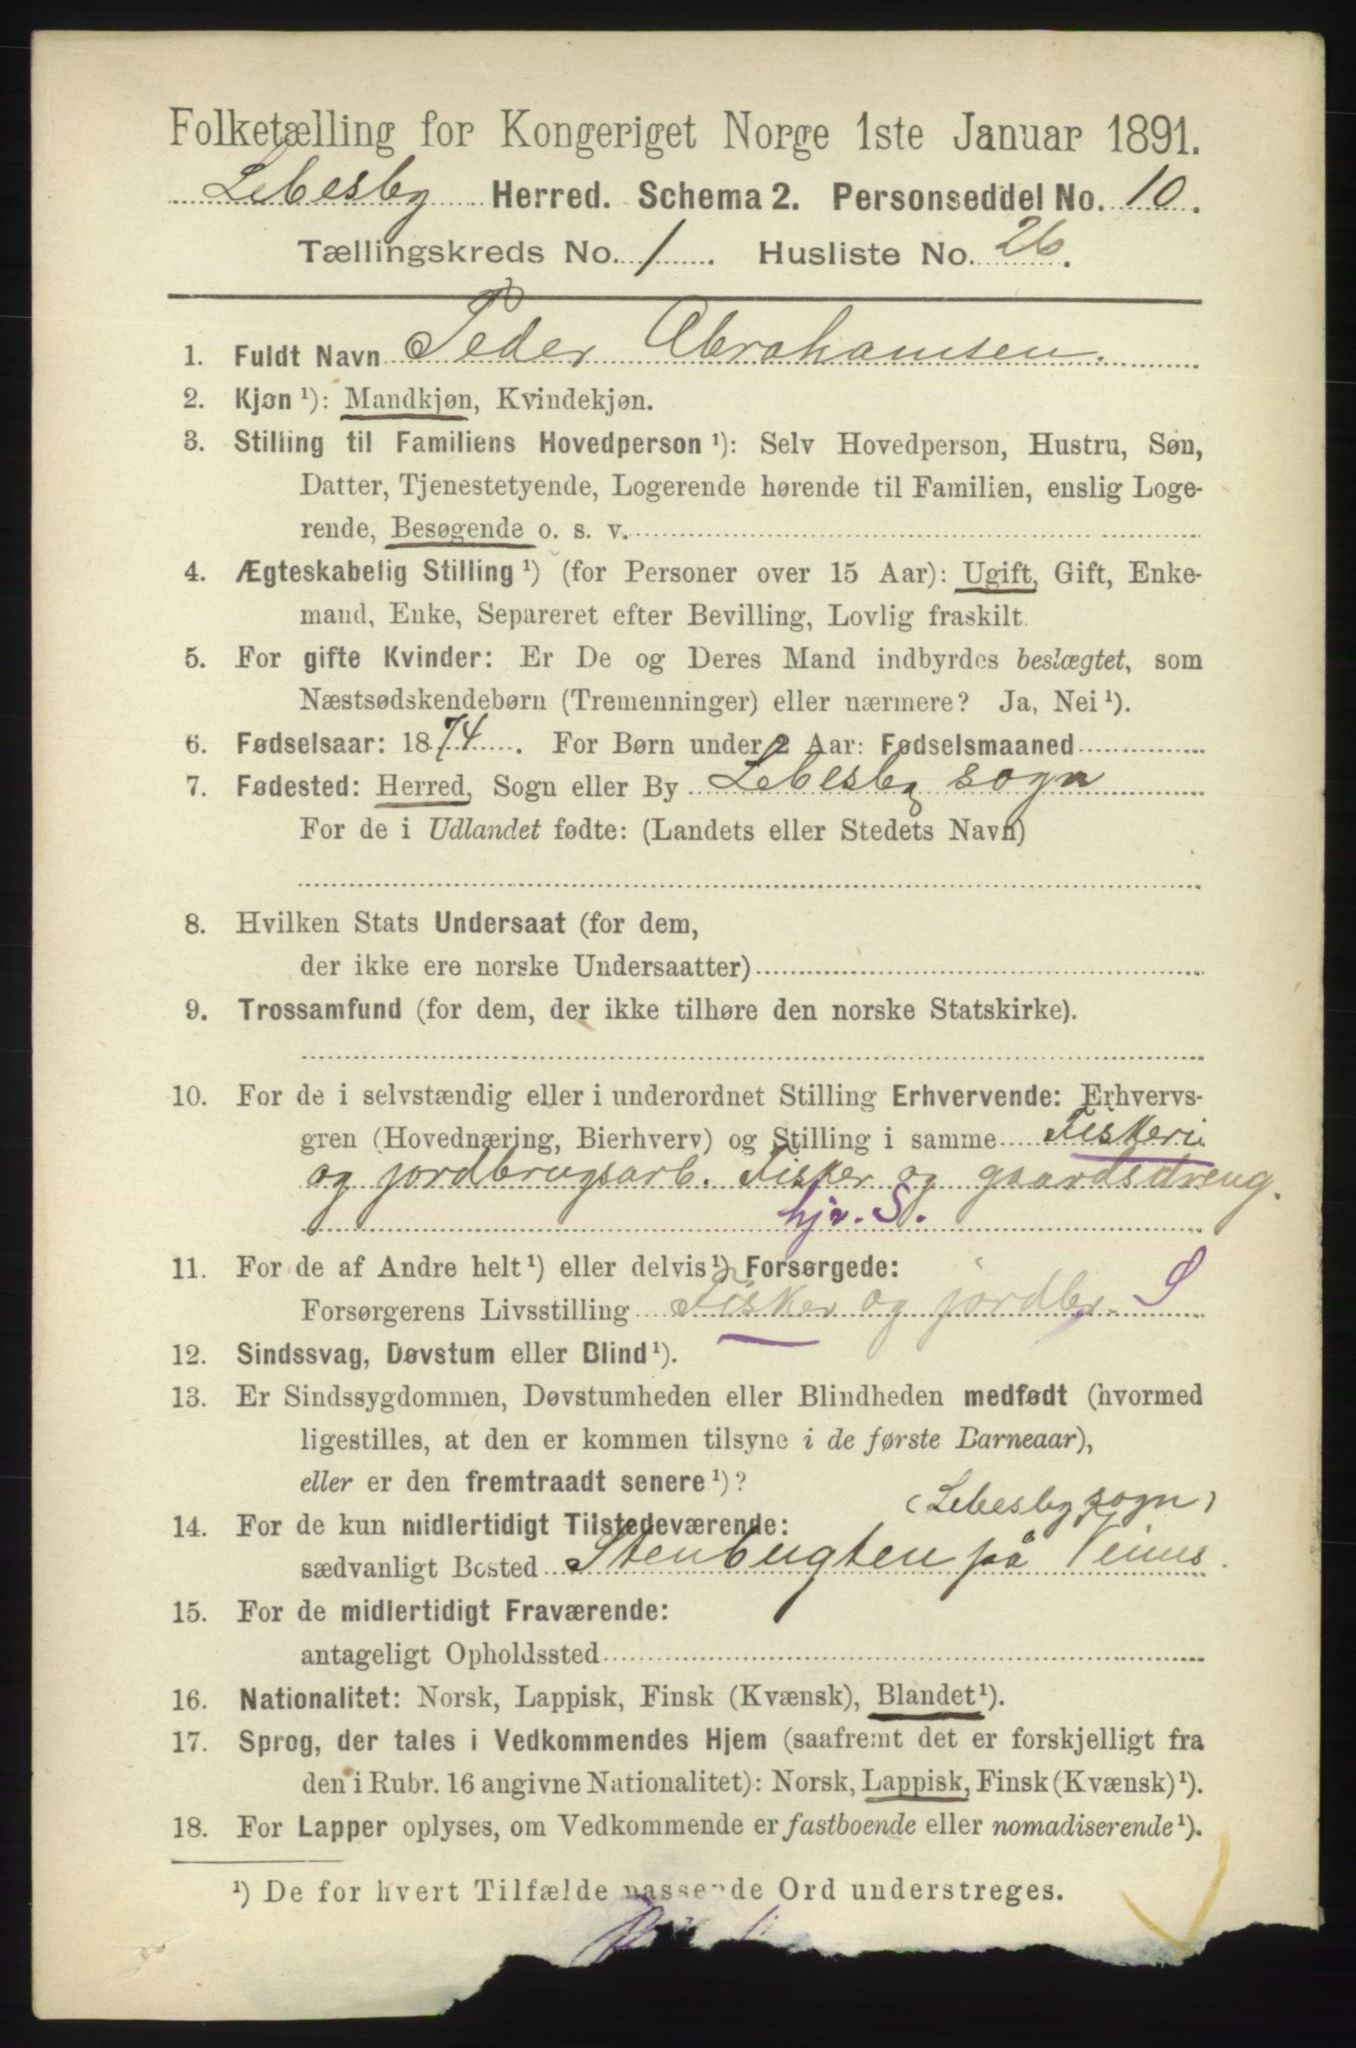 Folketælling for Kongeriget Norge 1ste Januar 1891.
Lebesby Herred. Schema 2. Personseddel No. 10.
Tællingskreds No. 1. Husliste No. 26.
1. Fuldt Navn Peder Abrahamsen.
2. Kjøn ¹): Mandkjøn, Kvindekjøn.
3. Stilling til Familiens Hovedperson ¹): Selv Hovedperson, Hustru, Søn,
Datter, Tjenestetyende, Logerende hørende til Familien, enslig Loge-
rende, Besøgende o. s. v.
4. Ægteskabelig Stilling ¹) (for Personer over 15 Aar): Ugift, Gift, Enke-
mand, Enke, Separeret efter Bevilling, Lovlig fraskilt.
5. For gifte Kvinder: Er De og Deres Mand indbyrdes beslægtet, som
Næstsødskendebørn (Tremenninger) eller nærmere? Ja, Nei ¹).
6. Fødselsaar: 1874. For Børn under 2 Aar: Fødselsmaaned
7. Fødested: Herred, Sogn eller By Lebesby sogn
For de i Udlandet fødte: (Landets eller Stedets Navn)
8. Hvilken Stats Undersaat (for dem,
der ikke ere norske Undersaatter)
9. Trossamfund (for dem, der ikke tilhøre den norske Statskirke).
10. For de i selvstændig eller i underordnet Stilling Erhvervende: Erhvervs-
gren (Hovednæring, Bierhverv) og Stilling i samme Fiskeri
og jordbrugsarb. Fisker og gaardsdreng.
hjv. S.
11. For de af Andre helt ¹) eller delvis ¹) Forsørgede:
Forsørgerens Livsstilling Fisker og jordbr. S
12. Sindssvag, Døvstum eller Blind ¹).
13. Er Sindssygdommen, Døvstumheden eller Blindheden medfødt (hvormed
ligestilles, at den er kommen tilsyne i de første Barneaar),
eller er den fremtraadt senere ¹)?
(Lebesby sogn)
14. For de kun midlertidigt Tilstedeværende:
sædvanligt Bosted Stenbugten på Veines.
15. For de midlertidigt Fraværende:
antageligt Opholdssted
16. Nationalitet: Norsk, Lappisk, Finsk (Kvænsk), Blandet ¹).
17. Sprog, der tales i Vedkommendes Hjem (saafremt det er forskjelligt fra
den i Rubr. 16 angivne Nationalitet): Norsk, Lappisk, Finsk (Kvænsk) ¹).
18. For Lapper oplyses, om Vedkommende er fastboende eller nomadiserende ¹).
¹) De for hvert Tilfælde passende Ord understreges.